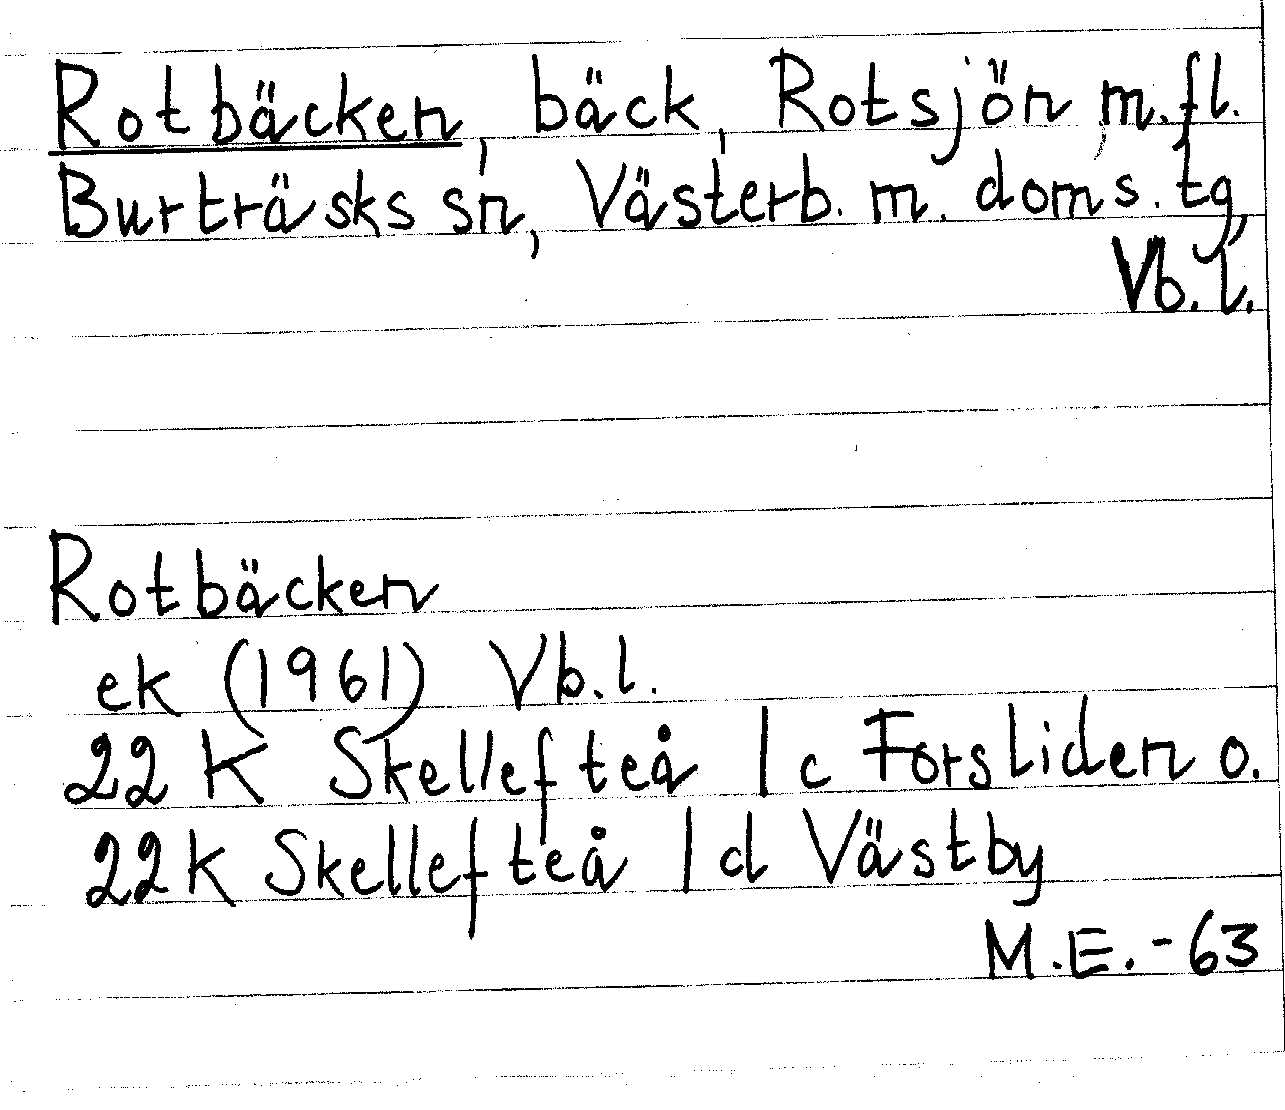 Rotbäcken, bäck, Rotsjön m.fl.
Burträsks sn, Västerb. m. doms. tg,
Vb. l.
Rotbäcken
ek (1961) Vb. l.
22 K Skellefteå 1 c Forsliden o.
22K Skellefteå 1 d Västby
M.E. -63